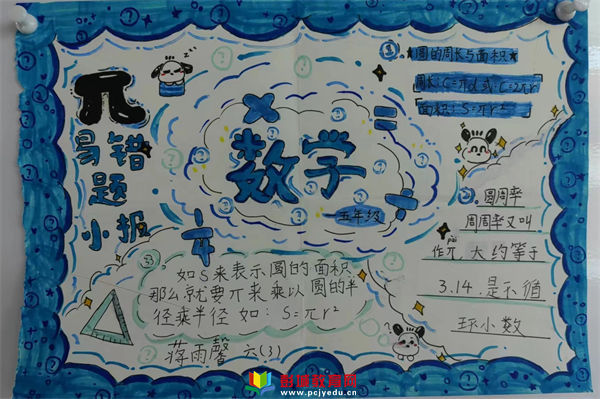 π
易错
题
小报
数学
五年级
①圆的周长与面积
周长:C=πd或C=2πr
面积:S=πr²
② 圆周率
周周率又叫
作π,大约等于
pài
3.14.是不循
环小数
③
如S来表示圆的面积
那么就要π来乘以圆的半
径乘半径 如:S=πr²
蒋雨馨 六(3)
彭城教育网
www.pcjyedu.cn